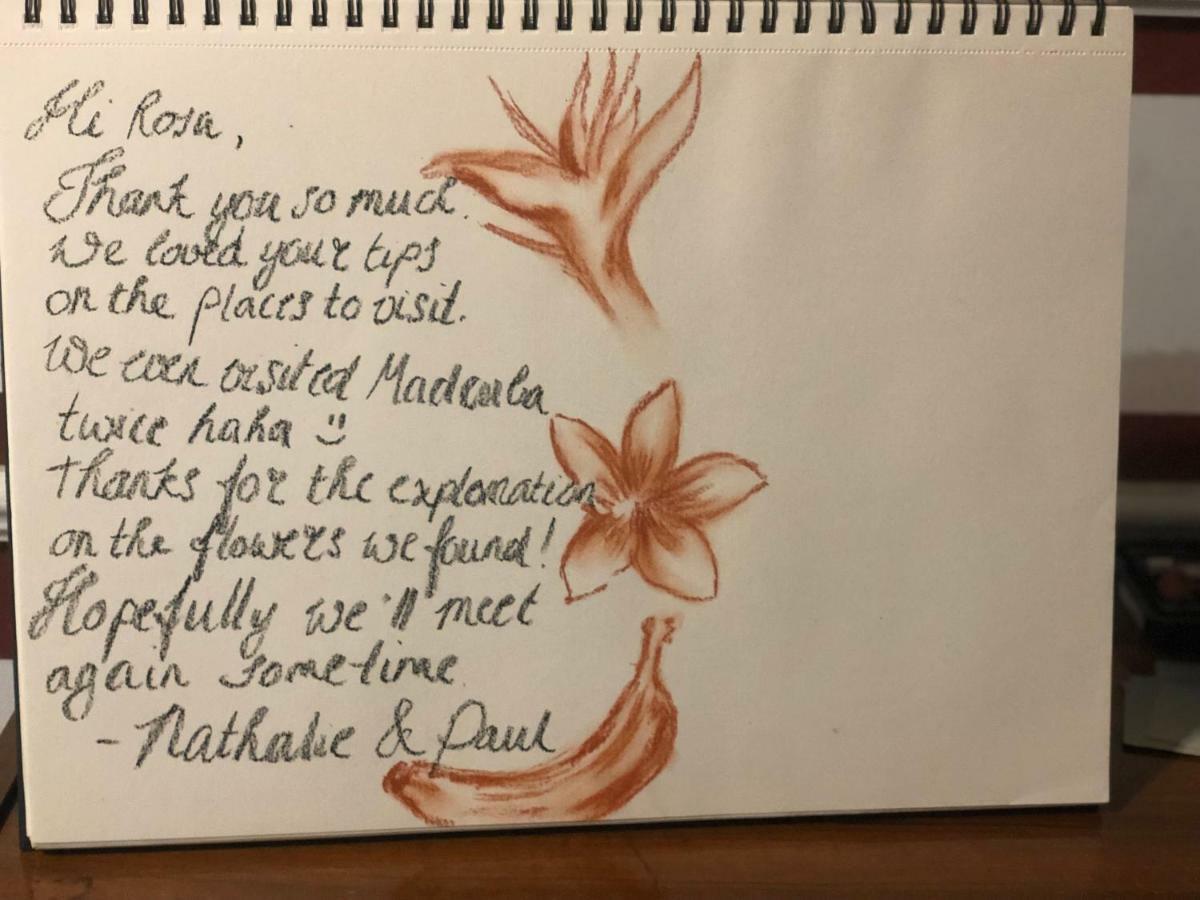 Hi Rosa,
Thank you so much.
We loved your tips
on the places to visit.
We even visited Maderuba
twice haha :)
Thanks for the explomation
on the flowers we found!
Hopefully we'll meet
again sometime.
- Nathalie & Paul